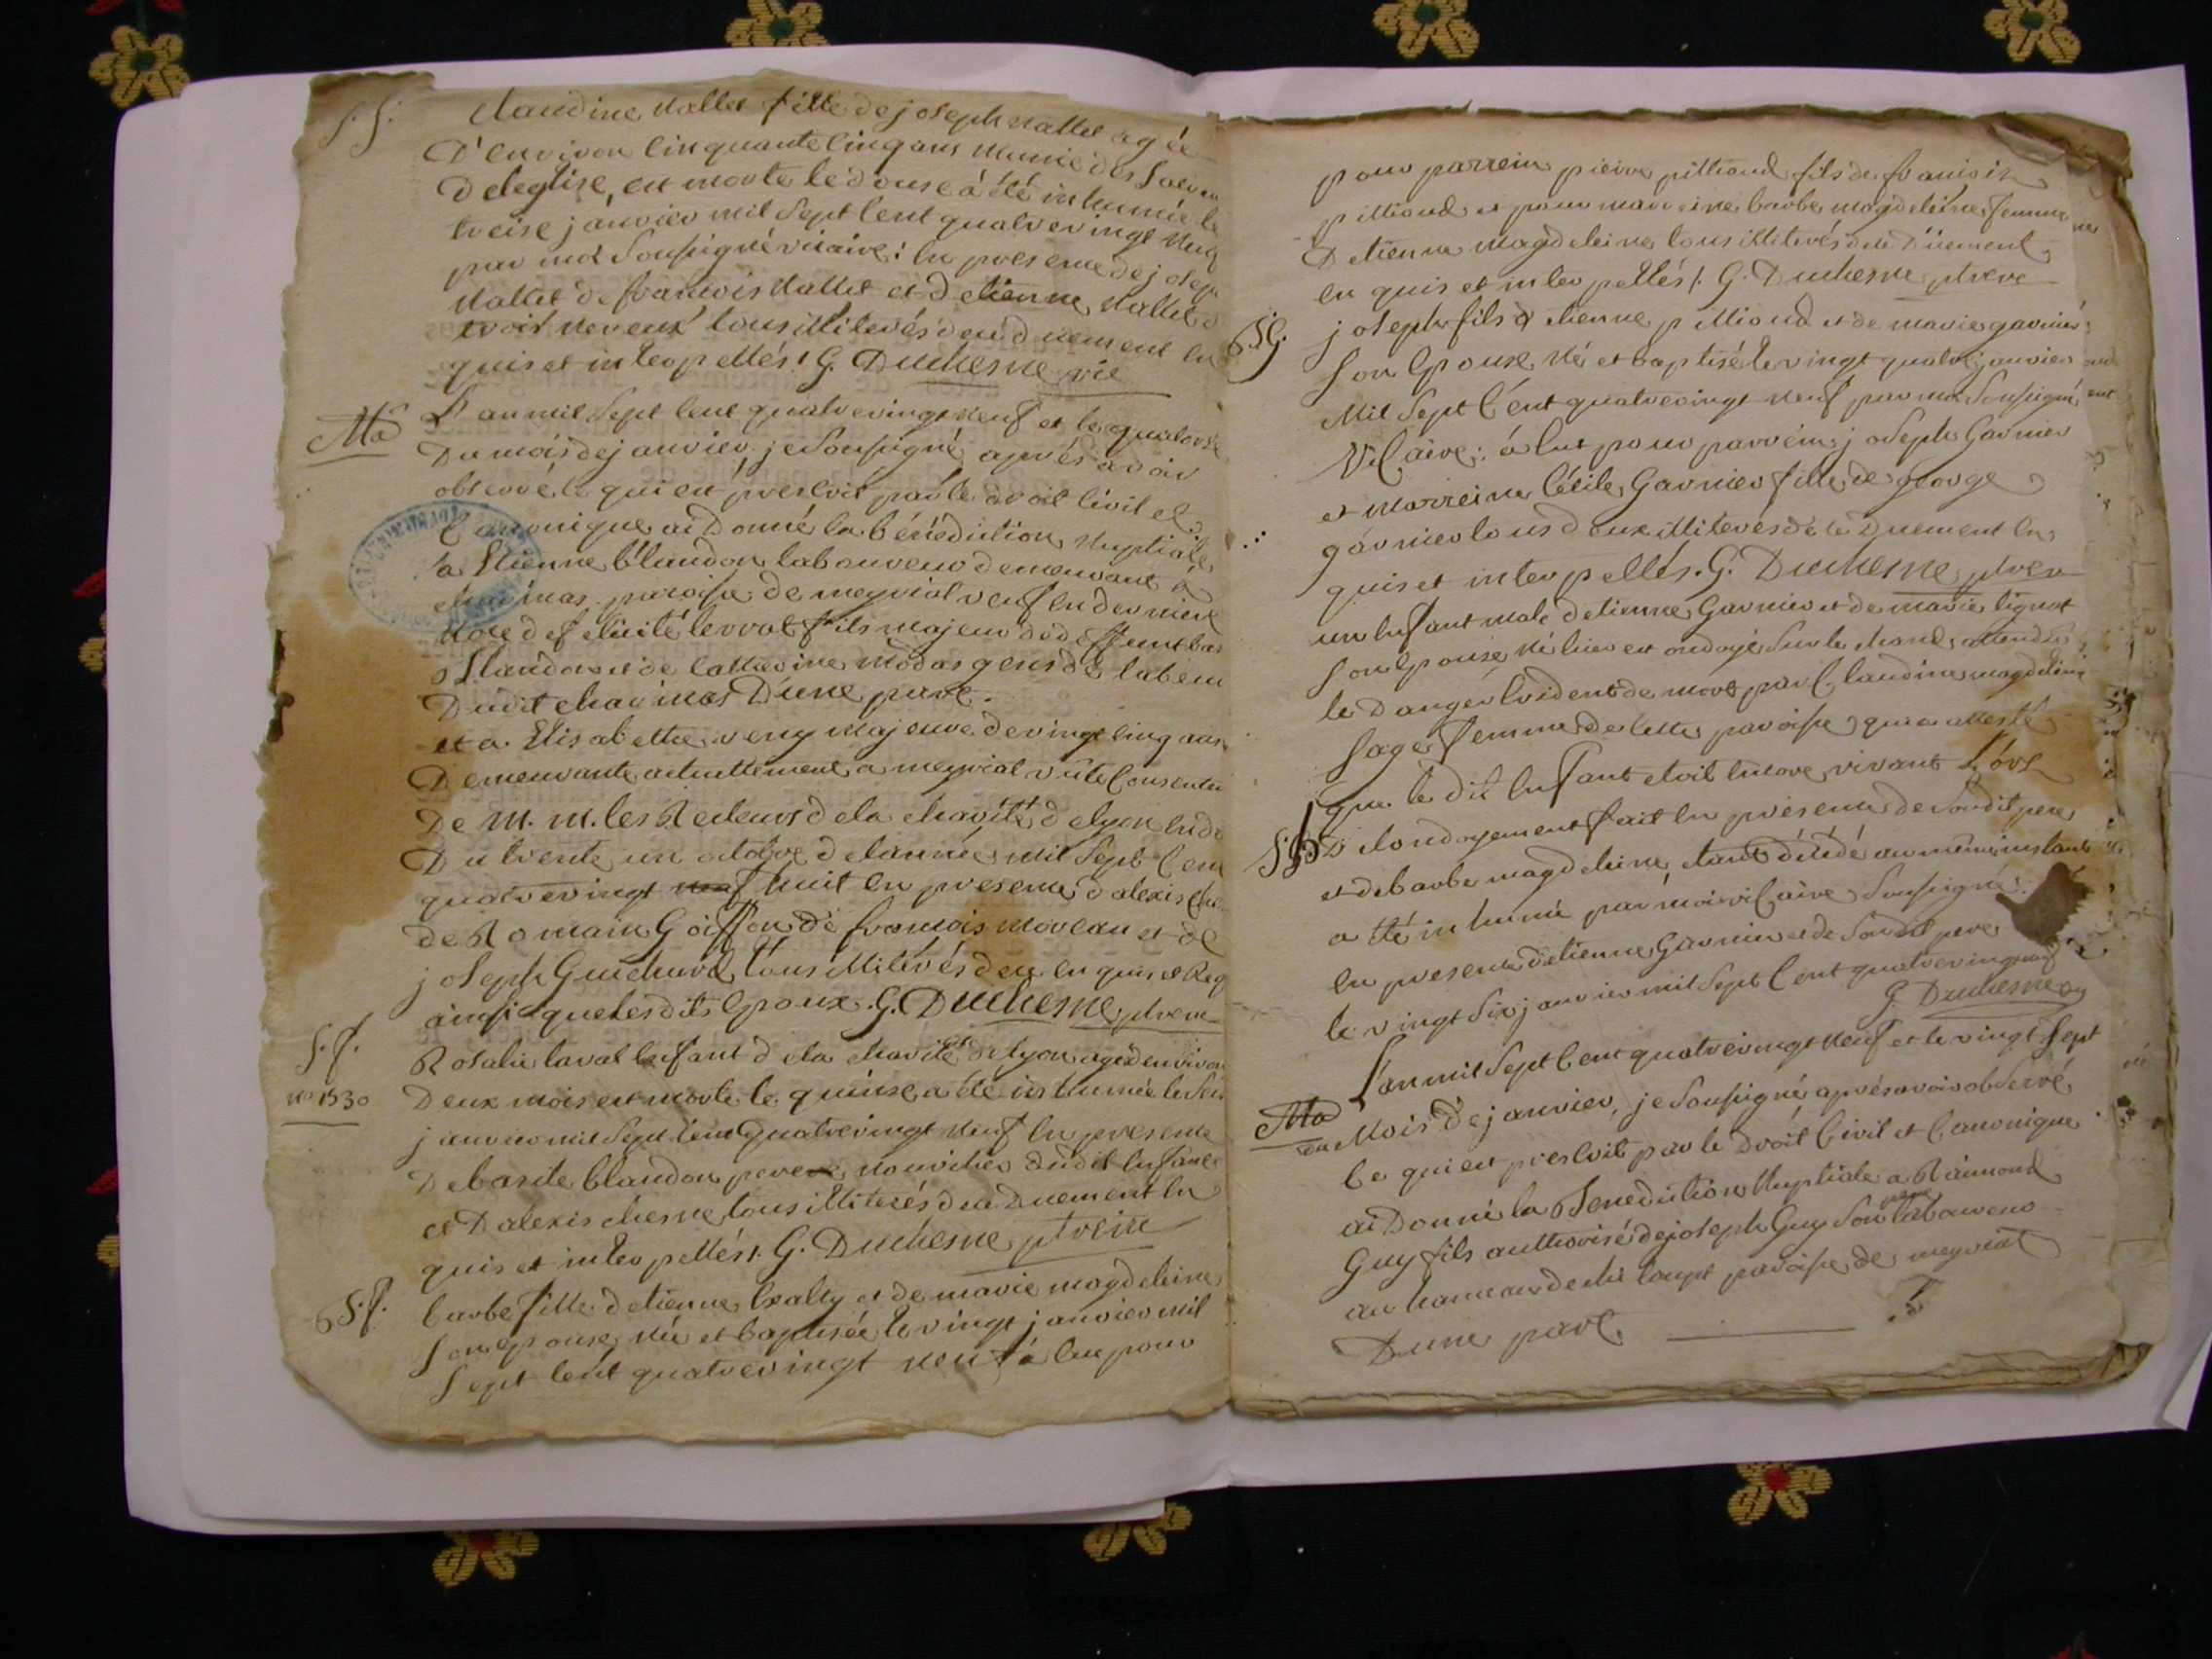 S. f. Claudine Nallet fille de joseph Nallet agée
D'environ Cinquante Cinq ans Munie des Sacrem
De leglise, est morte le douse a été inhumée le
treise janvier mil Sept Cent quatrevingt Neuf
par moi Soussigné vicaire: En presence de josep
Nallet de francois Nallet et detienne Nallet
trois Neveux tous illiterés de ce duement en
quis et interpellés. G. Duchesne vic
Ma L'an mil Sept Cent quatrevingt Neuf et le quatorse
Du mois de janvier je Soussigné après avoir
observé ce qui est prescrit par le droit Civil et
Canonique ai Donné la bénédiction Nuptiale
a Etienne blandon laboureur demeurant a
charinas paroisse de meyriat veuf en derniere
Noce de felicité fils majeur de deffunt bas
blandon et de Catherine modas gens de labeur
Dudit charinas D'une part.
et a Elisabethe veny Majeure de vingt Cinq ans
Demeurante actuellement a meyriat vûte Consentem
De M. M. les Recteurs de la charité de lyon en d
Du trente un octobre de lannée mil Sept Cent
quatrevingt neuf huit En presence d'alexis Che
de Romain Goiffon de francois Moreau et de
joseph Guichard tous illiterés de ce enquis et Req
ainsi que lesdits Epoux. G. Duchesne ptre vic
S. f. Rosalie laval Enfant de la charité de lyon agée denviron
no 1530 Deux mois est morte le quinse a été inhumée le Seis
janvier mil Sept Cent quatrevingt Neuf En presence
De basile blandon pere Nourricier dudit Enfant
et D'alexis chesne tous illiterés de ce Duement en
quis et interpellés. G. Duchesne ptre vic
B. S. f. barbe fille detienne et de marie magdeleine
Son epouse, Née et baptisée le vingt janvier mil
Sept Cent quatrevingt neuf a Eue pour
pour parrein pierre pillioud fils de francois
pillioud et pour marreine barbe magdeleine femme
Detienne magdeleine tous illiterés de ce Duement
en quis et interpellés. G. Duchesne ptre vic
B. S. G. joseph fils d'etienne pillioud et de marie garnier
Son Epouse Né et baptisé le vingt quatre janvier
Mil Sept Cent quatrevingt Neuf par moi Soussigné
Vicaire: a Eut pour parrein joseph Garnier
et marreine Cécile Garnier fille de george
garnier tous deux illiterés de ce Duement en
quis et interpellés. G. Duchesne ptre vic
un Enfant male detienne Garnier et de marie lignat
Son Epouse Né hier est ondoyé Sur le champ attendu
le Danger Evident de mort par Claudine magdeleine
Sage femme de cette paroisse qui a attesté
que le dit Enfant etoit Encore vivant Lors
De londoyement fait En presence de Sondit pere
et de barbe magdeleine, etant décédé au même instant
a été inhumé par moi vicaire Soussigné:
En presence detienne Garnier et de Sondit pere
le vingt Six janvier mil Sept Cent quatrevingt neuf
G. Duchesne
L'an mil Sept Cent quatrevingt Neuf et le vingt Sept
Ma du Mois de janvier, je Soussigné après avoir observé
Ce qui est prescrit par le Droit Civil et Canonique
ai Donné la Benediction Nuptiale a Raimond
Guy fils authorisé de joseph Guy Son pere laboureur
au hameau de paroisse de meyriat
D'une part.